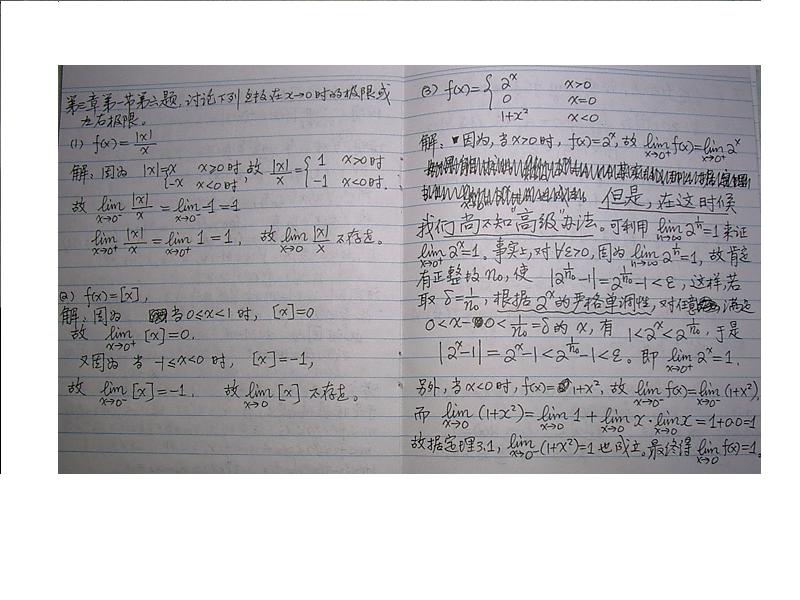 第三章第一节第六题,讨论下列函数在x→0时的极限或
左右极限。
(1) f(x)=|x|/x
解:因为 |x|={x x>0时, -x x<0时, 故 |x|/x={1 x>0时 -1 x<0时.
故 lim_{x→0⁻} |x|/x = lim_{x→0⁻} -1 = 1
lim_{x→0⁺} |x|/x = lim_{x→0⁺} 1 = 1, 故 lim_{x→0} |x|/x 不存在。
(2) f(x)=[x],
解:因为 当0≤x<1时, [x]=0
故 lim_{x→0⁺} [x]=0.
又因为 当 -1≤x<0时, [x]=-1,
故 lim_{x→0⁻} [x]=-1. 故 lim_{x→0} [x] 不存在。
(3) f(x)={2^x x>0
0 x=0
1+x² x<0
解:因为,当x>0时, f(x)=2^x, 故 lim_{x→0⁺} f(x)=lim_{x→0⁺} 2^x
但是,在这时候
我们尚不知"高级"办法。可利用 lim_{n→∞} 2^{1/n}=1来证
lim_{x→0⁺} 2^x=1. 事实上,对∀ε>0,因为 lim_{n→∞} 2^{1/n}=1, 故肯定
有正整数n₀,使 |2^{1/n₀}-1|=2^{1/n₀}-1<ε, 这样,若
取 δ=1/n₀, 根据2^x的严格单调性,对任意满足
0<x-0<1/n₀=δ 的 x, 有 1<2^x<2^{1/n₀}, 于是
|2^x-1|=2^x-1<2^{1/n₀}-1<ε. 即 lim_{x→0⁺} 2^x=1.
另外,当x<0时, f(x)=1+x², 故 lim_{x→0⁻} f(x)=lim_{x→0⁻} (1+x²),
而 lim_{x→0} (1+x²)=lim_{x→0} 1+lim_{x→0} x·lim_{x→0} x=1+0·0=1
故据定理3.1, lim_{x→0⁻} (1+x²)=1也成立。最终得 lim_{x→0} f(x)=1.